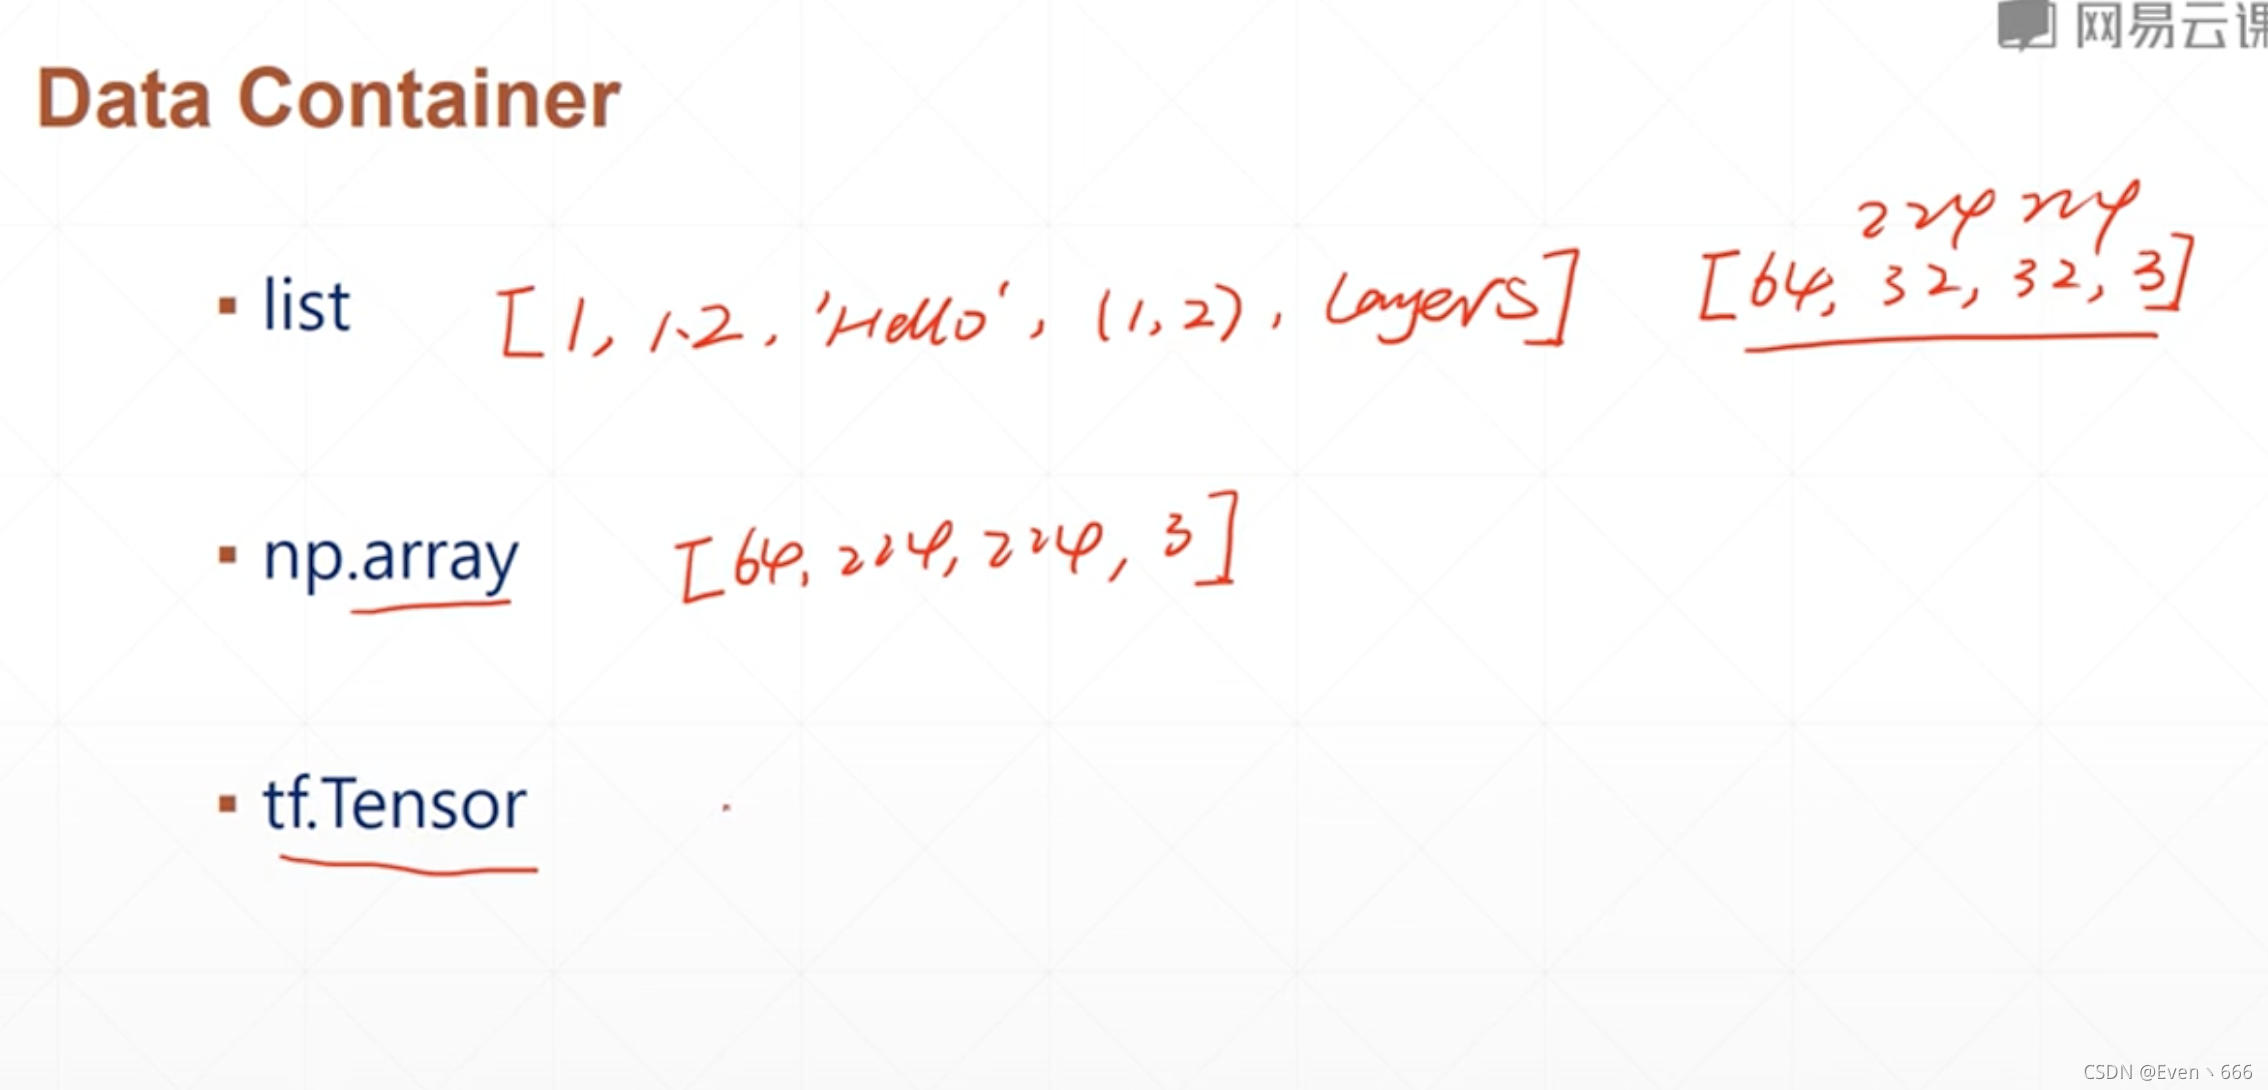 网易云课
Data Container
224 224
list [1, 1.2, 'Hello', (1,2), Layers] [64, 32, 32, 3]
np.array [64, 224, 224, 3]
tf.Tensor
CSDN @Even丶666